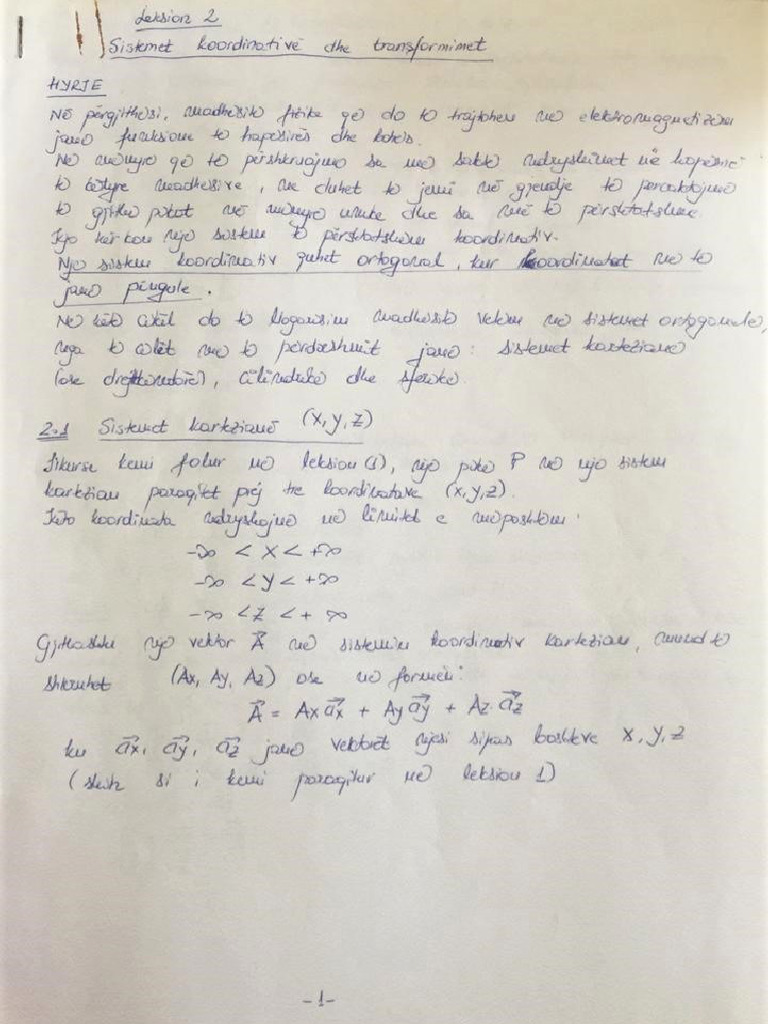 Leksion 2
Sistemet koordinativë dhe transformimet
HYRJE
Në përgjithësi, madhësitë fizike që do të trajtohen në elektromagnetizëm
janë funksione të hapësirës dhe kohës.
Në mënyrë që të përshkruajmë sa më saktë ndryshimet në hapësirë
të këtyre madhësive, ne duhet të jemi në gjendje të përcaktojmë
të gjitha pikat në mënyrë unike dhe sa më të përshtatshme.
Kjo kërkon një sistem të përshtatshëm koordinativ.
Një sistem koordinativ quhet ortogonal, kur koordinatat në të
janë pingule.
Në këtë cikël do të llogarisim madhësitë vetëm në sistemet ortogonale,
nga të cilët më të përdorshmit janë: sistemet karteziane
(ose drejtkëndorë), cilindrike dhe sferike.
2.1 Sistemet kartezianë (x, y, z)
Sikurse kemi folur në leksion (1), një pikë P në një sistem
kartezian paraqitet prej tre koordinatave (x, y, z).
Këto koordinata ndryshojnë në limitet e mëposhtëm:
-∞ < x < +∞
-∞ < y < +∞
-∞ < z < + ∞
Gjithashtu një vektor A⃗ në sistemin koordinativ kartezian, mund të
shkruhet (Ax, Ay, Az) ose në formën:
A⃗ = Ax a⃗x + Ay a⃗y + Az · a⃗z
ku a⃗x, a⃗y, a⃗z janë vektorët njësi sipas boshteve x, y, z
(skuth si i kemi paraqitur në leksion 1)
-1-